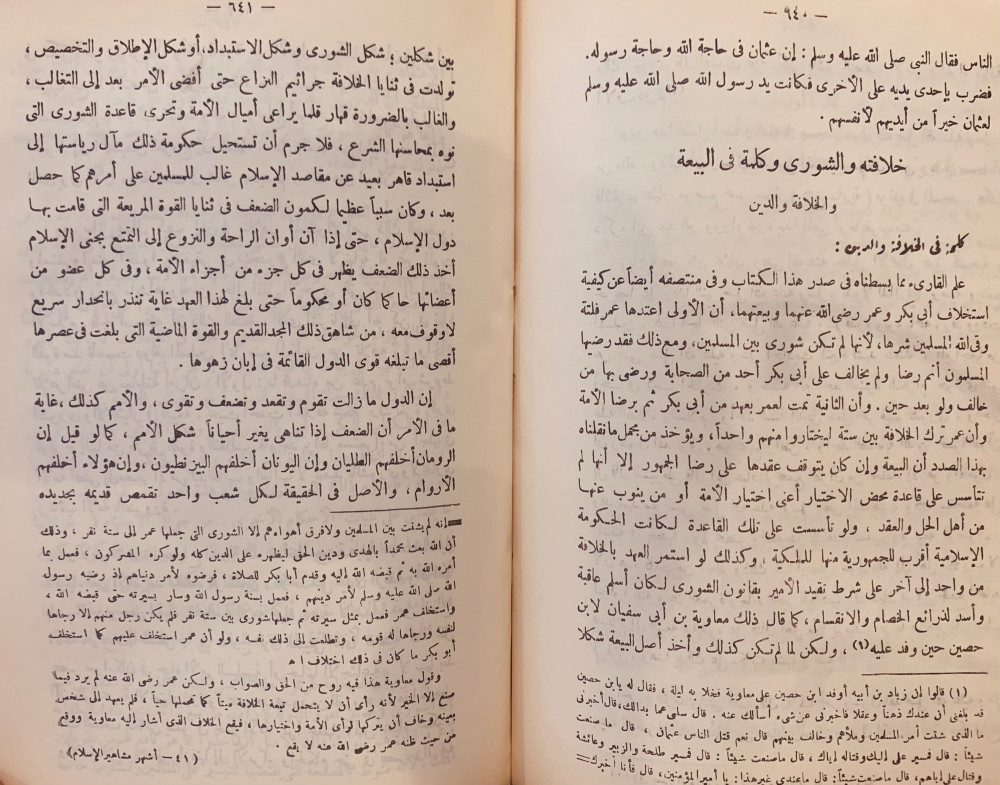 — ٦٤٠ —
الناس فقال النبي صلى الله عليه وسلم : إن عثمان فى حاجة الله وحاجة رسوله.
فضرب بإحدى يديه على الأخرى فكانت يد رسول الله صلى الله عليه وسلم
لعثمان خيراً من أيديهم لأنفسهم .
خلافته والشورى وكلمة فى البيعة
والخلافة والدين
كلمة فى الخلافة والدين :
علم القارىء مما بسطناه فى صدر هذا الكتاب وفى منتصفه أيضاً عن كيفية
استخلاف أبى بكر وعمر رضى الله عنهما وبيعتهما، أن الأولى اعتدها عمر فلتة
وقى الله المسلمين شرها، لأنها لم تكن شورى بين المسلمين، ومع ذلك فقد رضيها
المسلمون أتم رضا ولم يخالف على أبى بكر أحد من الصحابة ورضى بها من
خالف ولو بعد حين . وأن الثانية تمت لعمر بعهد من أبى بكر ثم برضا الأمة
وأن عمر ترك الخلافة بين ستة ليختاروا منهم واحداً، ويؤخذ من مجمل ما نقلناه
بهذا الصدد أن البيعة وإن كان يتوقف عقدها على رضا الجمهور إلا أنها لم
تتأسس على قاعدة محض الاختيار أعنى اختيار الأمة أو من ينوب عنها
من أهل الحل والعقد ، ولو تأسست على تلك القاعدة لكانت الحكومة
الإسلامية أقرب للجمهورية منها للملكية ، وكذلك لو استمر العهد بالخلافة
من واحد إلى آخر على شرط تقييد الأمير بقانون الشورى لكان أسلم عاقبة
وأسد لذرائع الخصام والانقسام ، كما قال ذلك معاوية بن أبى سفيان لابن
حصين حين وفد عليه (١) ، ولكن لما لم تكن كذلك وأخذ أصل البيعة شكلا
(١) قالوا إن زياد بن أبيه أوفد ابن حصين على معاوية فخلا به ليلة ، فقال له يابن حصين
قد بلغنى أن عندك ذهناً وعقلا فاخبرنى عن شىء أسألك عنه . قال سلنى عما بدالك، قال أخبرنى
ما الذى شتت أمر المسلمين وملأهم وخالف بينهم قال نعم قتل الناس عثمان ، قال ما صنعت
شيئاً : قال فسير على إليك وقتاله إياك ، قال ما صنعت شيئاً : قال فسير طلحة والزبير وعائشة
وقتال على إياهم، قال ما صنعت شيئاً : قال ما عندى غير هذا : يا أمير المؤمنين، قال فأنا أخبرك =
— ٦٤١ —
بين شكلين ؛ شكل الشورى وشكل الاستبداد، أو شكل الإطلاق والتخصيص ،
تولدت فى ثنايا الخلافة جراثيم النزاع حتى أفضى الأمر بعد إلى التغالب ،
والغالب بالضرورة قهار قلما يراعى أميال الأمة وتحرى قاعدة الشورى التى
نوه بمحاسنها الشرع ، فلا جرم أن تستحيل حكومة ذلك مآل رياستها إلى
استبداد قاهر بعيد عن مقاصد الإسلام غالب للمسلمين على أمرهم كما حصل
بعد ، وكان سبباً عظيما لكمون الضعف فى ثنايا القوة المريعة التى قامت بها
دول الإسلام ، حتى إذا آن أوان الراحة والنزوع إلى التمتع بجنى الإسلام
أخذ ذلك الضعف يظهر فى كل جزء من أجزاء الأمة ، وفى كل عضو من
أعضائها حاكما كان أو محكوماً حتى بلغ لهذا العهد غاية تنذر بانحدار سريع
لا وقوف معه ، من شاهق ذلك المجد القديم والقوة الماضية التى بلغت فى عصرها
أقصى ما تبلغه قوى الدول القائمة فى إبان زهوها .
إن الدول ما زالت تقوم وتقعد وتضعف وتقوى ، والأمم كذلك ، غاية
ما فى الأمر أن الضعف إذا تناهى يغير أحياناً شكل الأمم ، كما لو قيل إن
الرومان أخلفهم الطليان وإن اليونان أخلفهم البيزنطيون ، وإن هؤلاء أخلفهم
الأروام ، والأصل فى الحقيقة لكل شعب واحد تقمص قديمه بجديده
= إنه لم يشتت بين المسلمين ولا فرق أهواءهم إلا الشورى التى جعلها عمر إلى ستة نفر ، وذلك
أن الله بعث محمداً بالهدى ودين الحق ليظهره على الدين كله ولو كره المشركون ، فعمل بما
أمره الله به ثم قبضه الله إليه وقدم أبا بكر للصلاة ، فرضوه لأمر دنياهم إذ رضيه رسول
الله صلى الله عليه وسلم لأمر دينهم ، فعمل بسنة رسول الله وسار بسيرته حتى قبضه الله ،
واستخلف عمر فعمل بمثل سيرته ثم جعلها شورى بين ستة نفر فلم يكن رجل منهم إلا رجاها
لنفسه ورجاها له قومه ، وتطلعت إلى ذلك نفسه ، ولو أن عمر استخلف عليهم كما استخلف
أبو بكر ما كان فى ذلك اختلاف ا هـ
وقول معاوية هذا فيه روح من الحق والصواب ، ولكن عمر رضى الله عنه لم يرد فيما
صنع إلا الخير لأنه رأى أن لا يتحمل تبعة الخلافة ميتاً كما تحملها حياً ، فلم يعهد إلى شخص
بعينه وخاف أن يتركها لرأى الأمة واختيارها ، فيقع الخلاف الذى أشار إليه معاوية ووقع
من حيث ظنه عمر رضى الله عنه لا يقع .
(٤١ — أشهر مشاهير الإسلام)